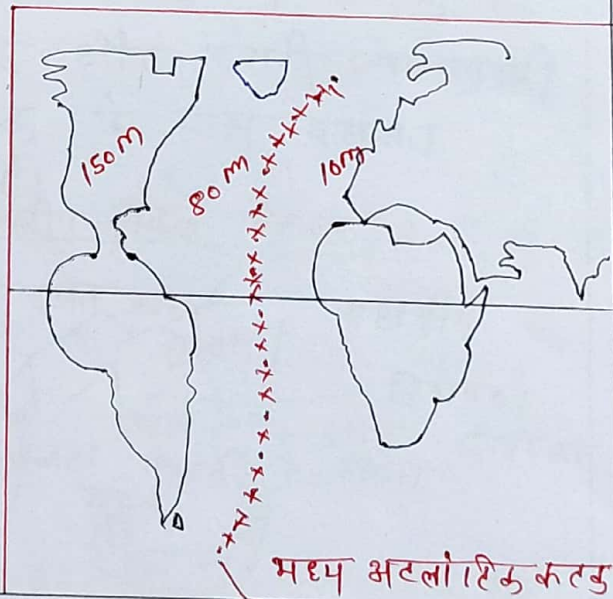 150 m
80 m
10m
मध्य अटलांटिक कटक